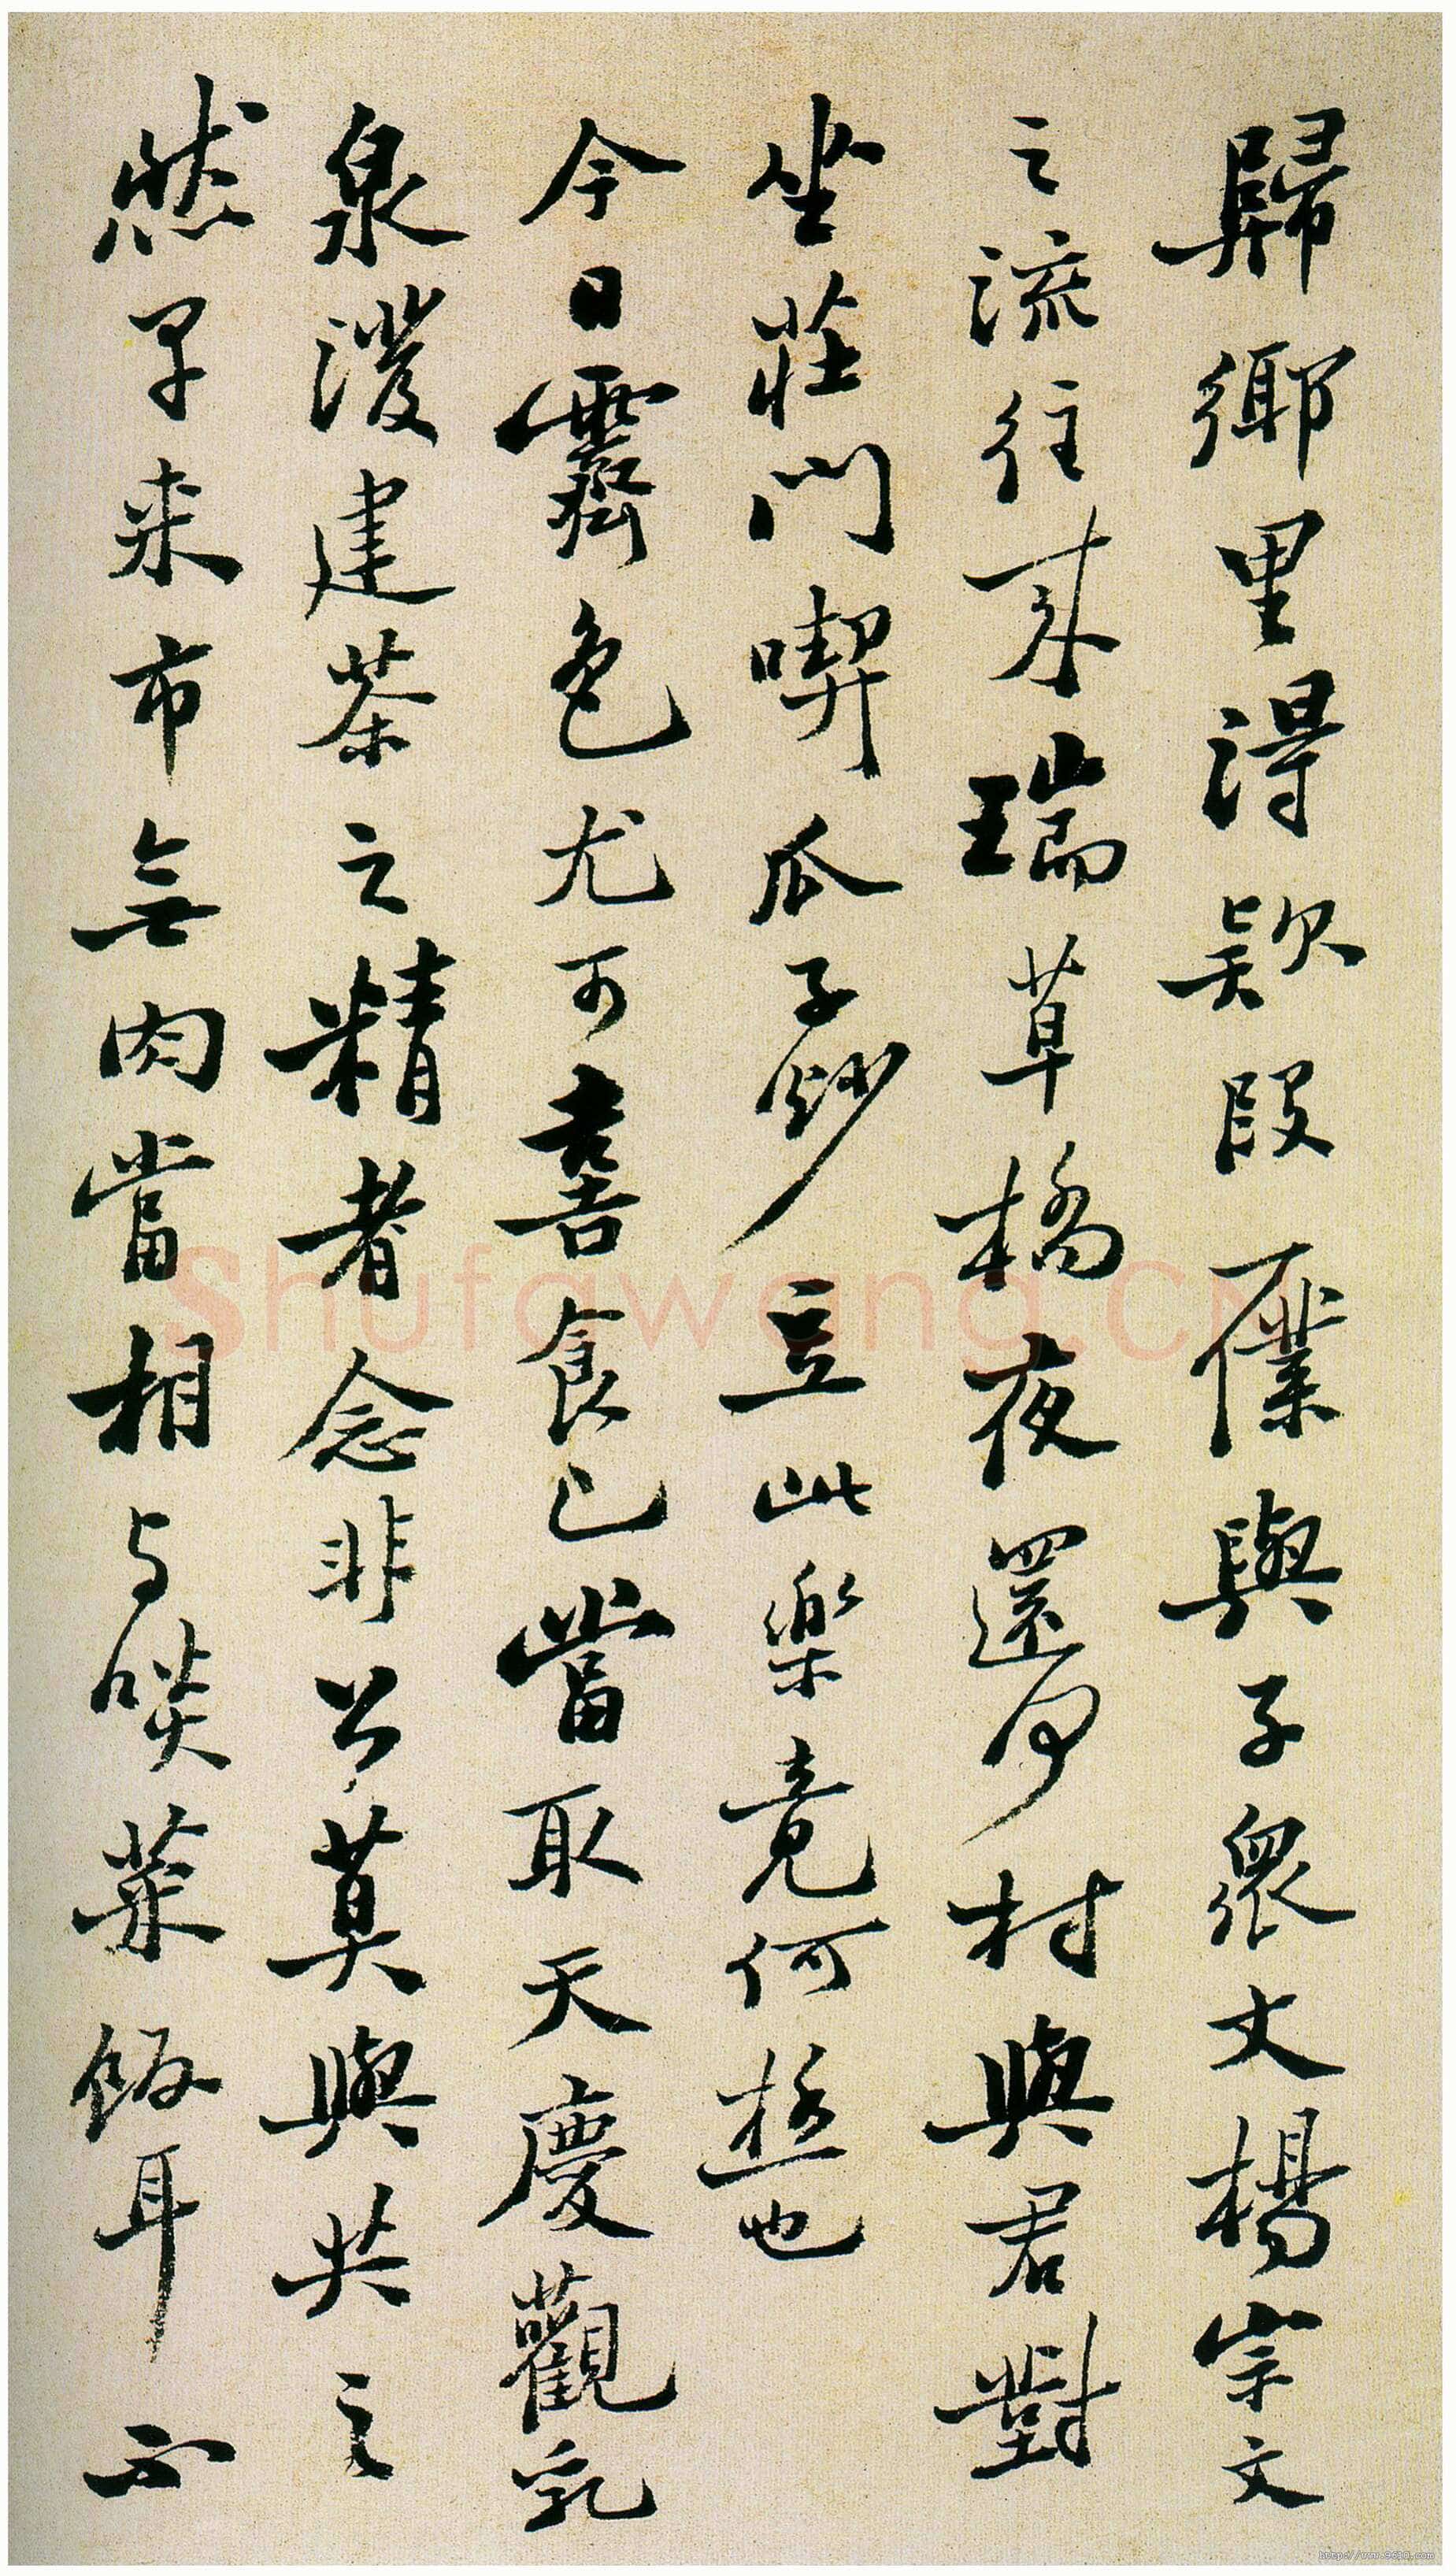 歸鄉里得款段僕與子衆丈楊宗文
之流往來瑞草橋夜還何村與君對
坐莊門喫瓜子炒豆此樂竟何極也
今日霽色尤可喜食已當取天慶觀乳
泉潑建茶之精者念非公莫與共之
然早來市無肉當相与啖菜飯耳不
Shufawang.CN